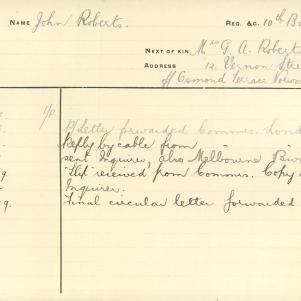 NAME John Roberts. REG. &C. 10th Ba
NEXT OF KIN Mrs G. A. Robert
ADDRESS 12. Vernon Stre
off Osmond Terrace Norwoo
1/P P/Letter forwarded Commrs. Lond
Reply by cable from
sent Inquirer, also Melbourne
"Slip" received from Commrs. Copy
9. Inquirer.
9. Final circular letter forwarded